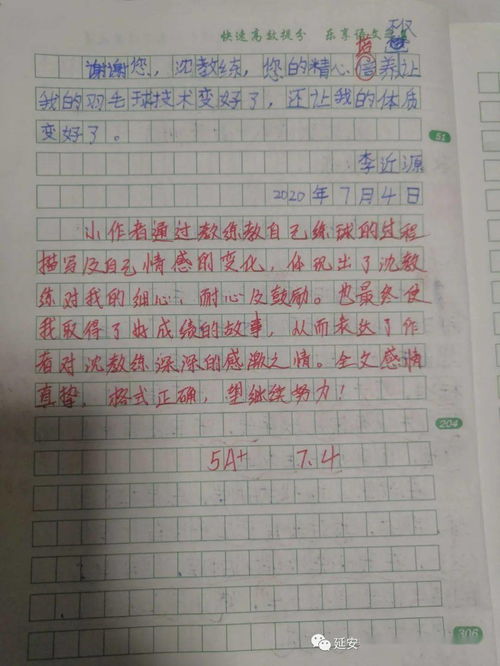 快速高效提分 乐享语文
培
谢谢您，沈教练，您的精心倍养让
我的羽毛球技术变好了，还让我的体质
变好了。
51
李近源
2020年7月4日
小作者通过教练教自己练球的过程
描写及自己情感的变化，体现出了沈教
练对我的细心、耐心及鼓励。也最终使
我取得了好成绩的故事，从而表达了作
者对沈教练深深的感激之情。全文感情
真挚，格式正确，望继续努力！
204
5A+ 7.4
306
延安